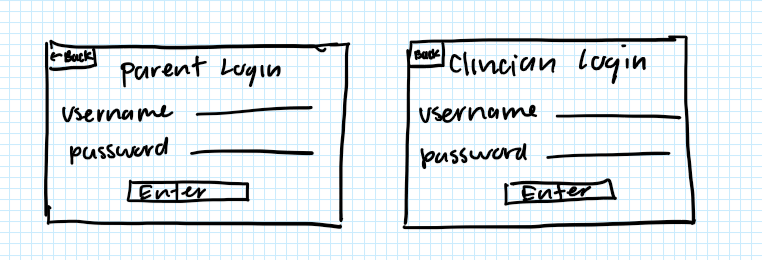 ← Back
Parent Login
username
password
Enter
Back
Clincian Login
username
password
Enter